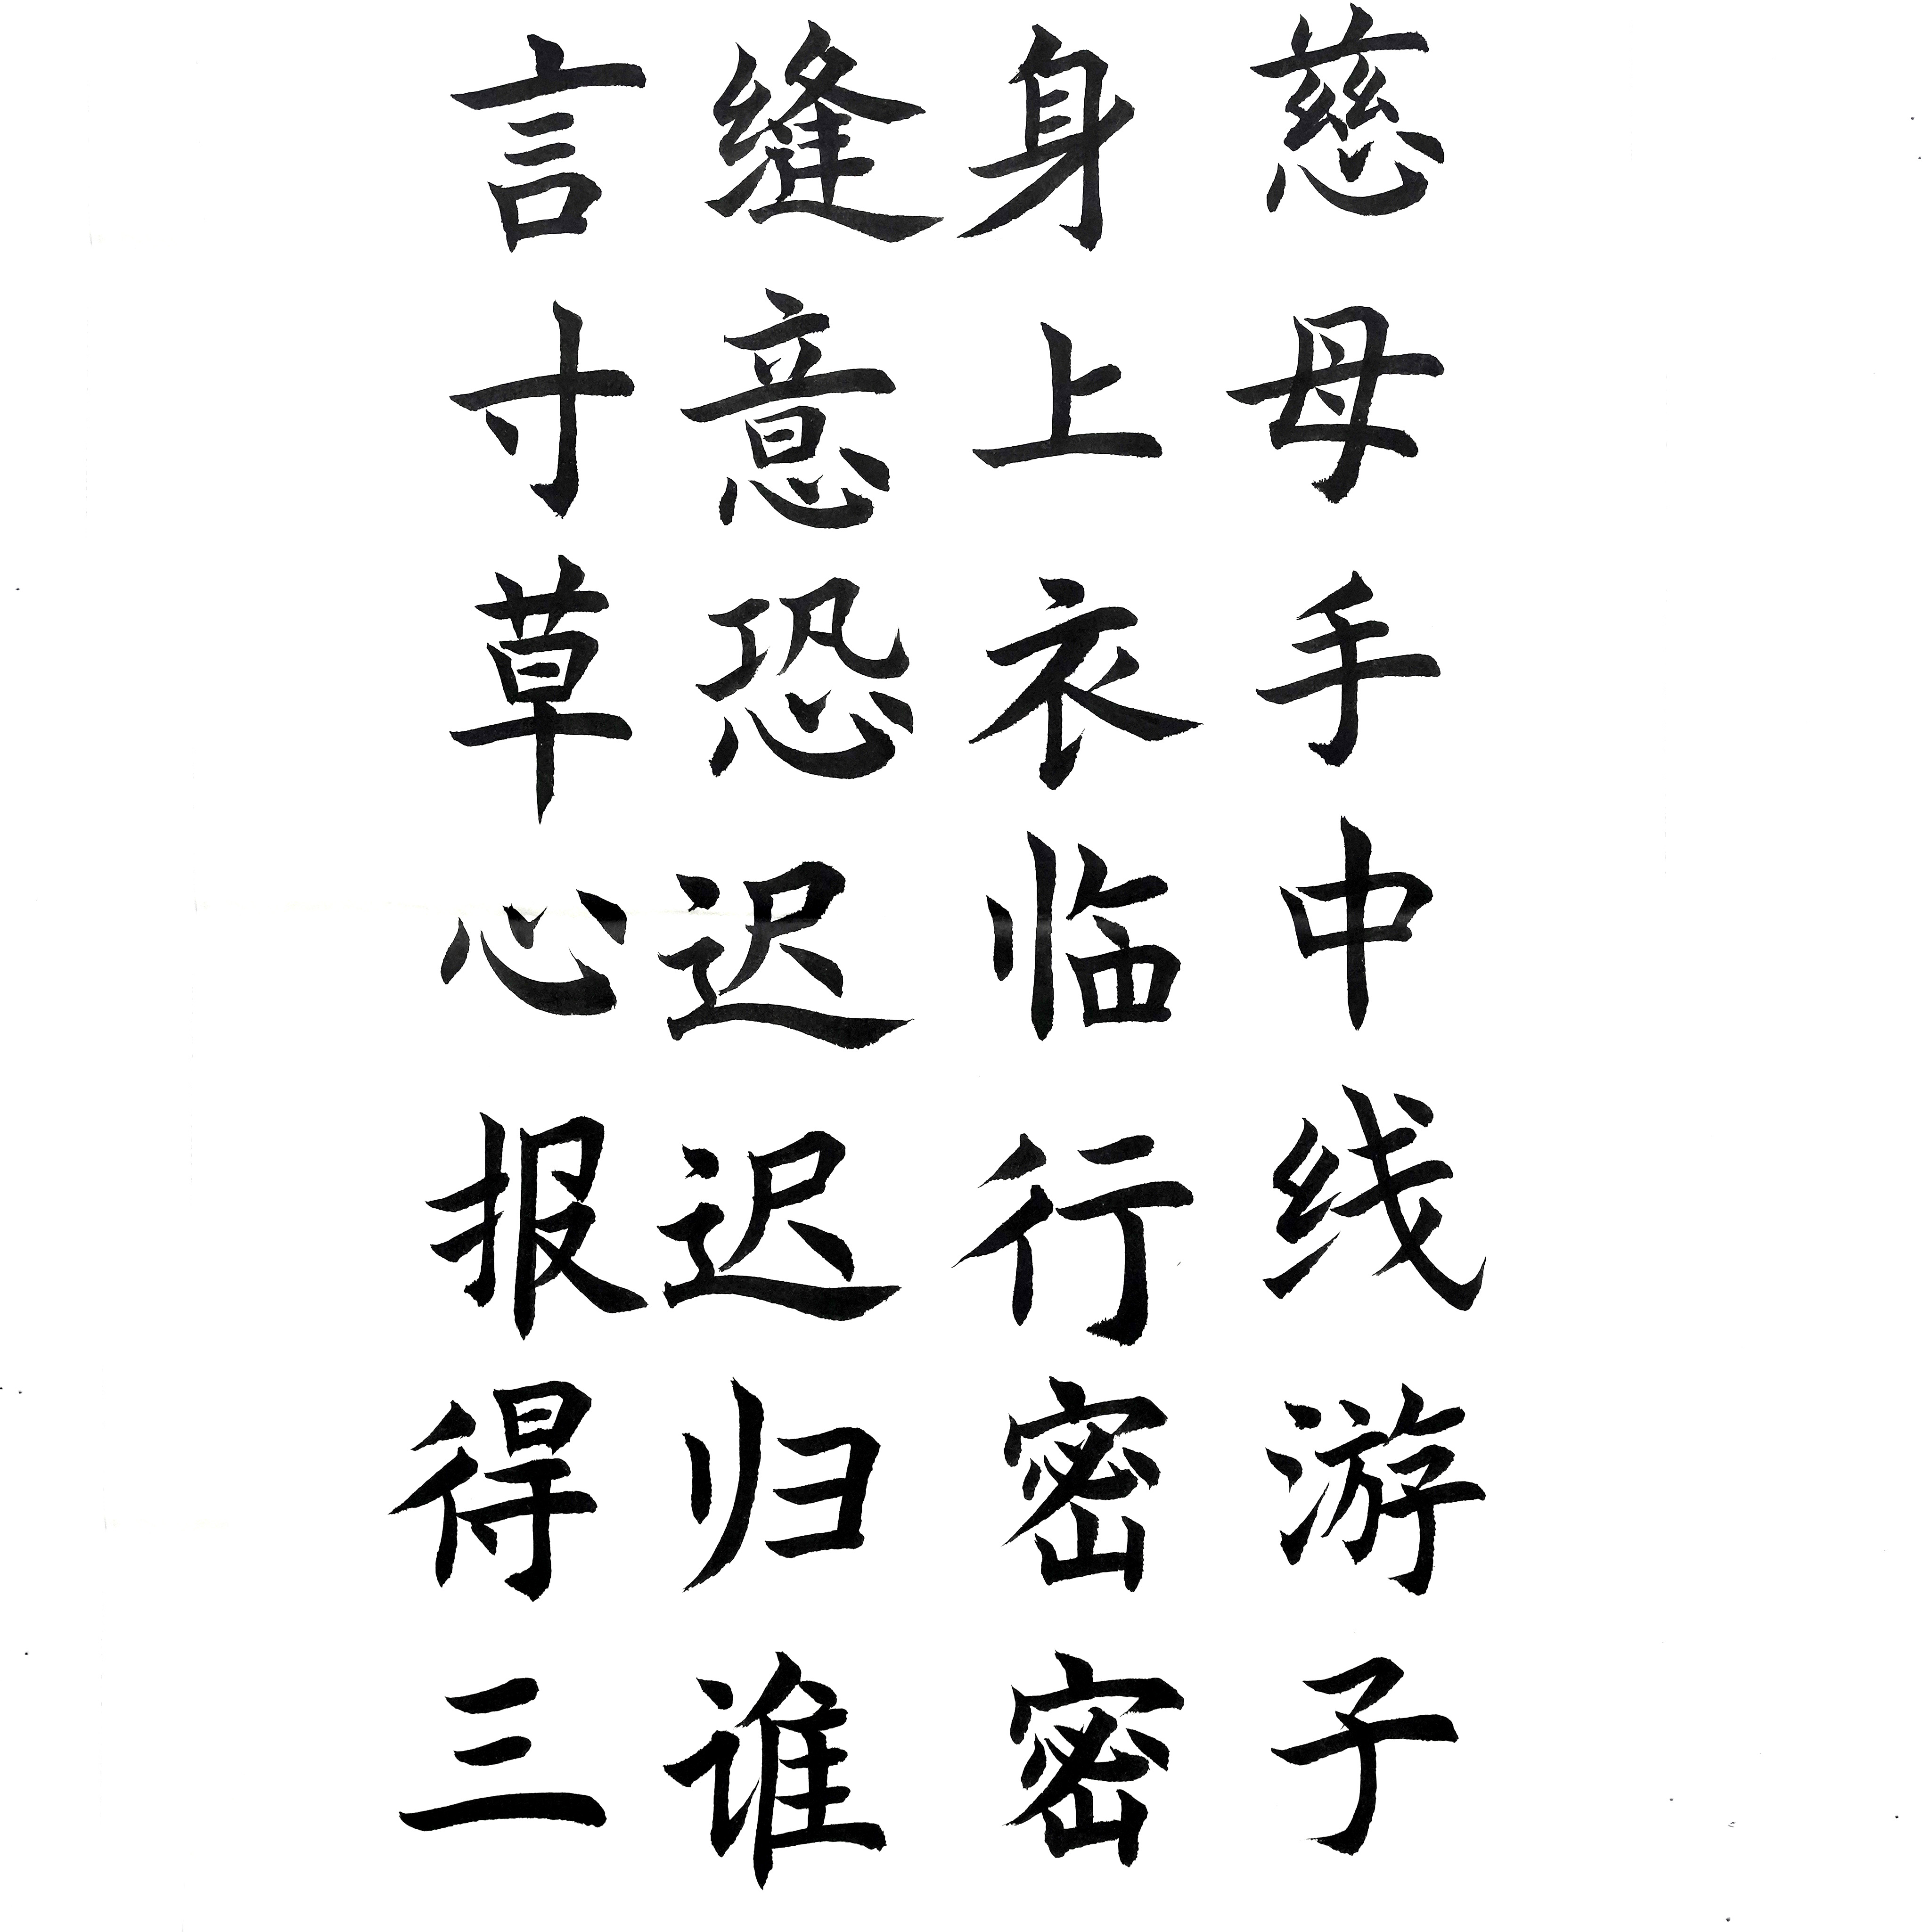 慈母手中线游子
身上衣临行密密
缝意恐迟迟归谁
言寸草心报得三